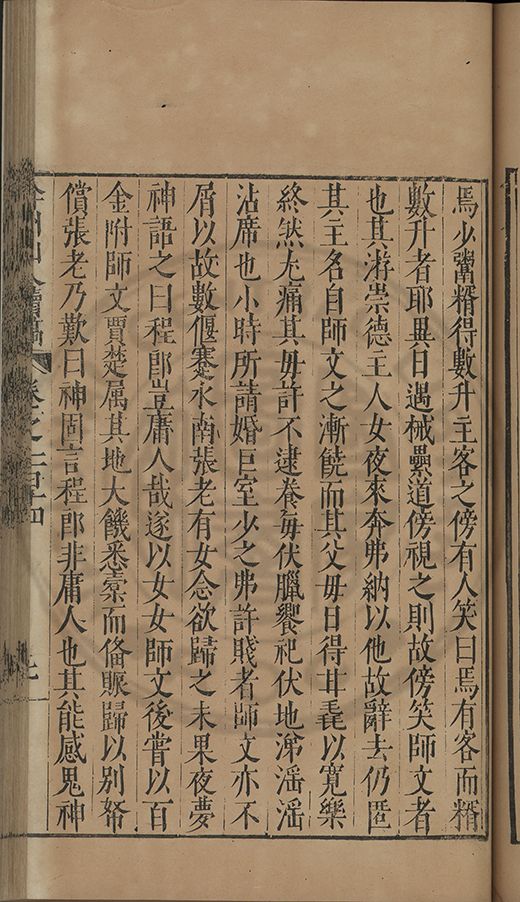 焉少鬻糈得數升主客之傍有人笑曰焉有客而糈
數升者耶異日遇械纍道傍視之則故傍笑師文者
也其游崇德主人女夜來奔弗納以他故辭去仍匿
其主名自師文之漸饒而其父毋日得甘毳以寬樂
終然尤痛其毋許不逮養每伏臘饗祀伏地涕滛滛
沾席也小時所請婚巨室少之弗許賤者師文亦不
屑以故數偃蹇永南張老有女念欲歸之未果夜夢
神語之曰程郎豈庸人哉遂以女女師文後嘗以百
金附師文賈楚属其地大饑悉槖而俻賑歸以别帑
償張老乃歎曰神固言程郎非庸人也其能感鬼神
卷之一百十四